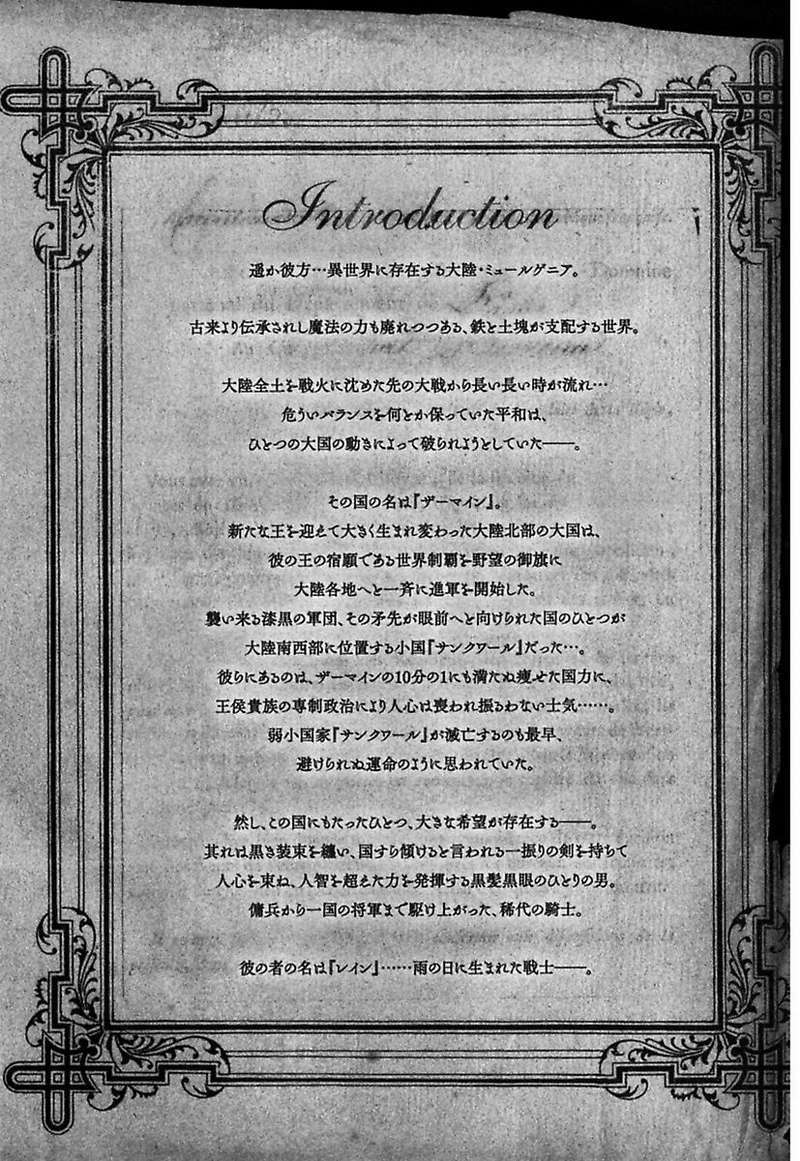 Introduction
遥か彼方…異世界に存在する大陸・ミュールゲニア。
古来より伝承されし魔法の力も廃れつつある、鉄と土塊が支配する世界。
大陸全土を戦火に沈めた先の大戦から長い長い時が流れ…
危ういバランスを何とか保っていた平和は、
ひとつの大国の動きによって破られようとしていた――。
その国の名は『ザーマイン』。
新たな王を迎えて大きく生まれ変わった大陸北部の大国は、
彼の王の宿願である世界制覇を野望の御旗に
大陸各地へと一斉に進軍を開始した。
襲い来る漆黒の軍団、その矛先が眼前へと向けられた国のひとつが
大陸南西部に位置する小国『サンクワール』だった…。
彼らにあるのは、ザーマインの10分の1にも満たぬ痩せた国力に、
王侯貴族の専制政治により人心は喪われ振るわない士気……。
弱小国家『サンクワール』が滅亡するのも最早、
避けられぬ運命のように思われていた。
然し、この国にもたったひとつ、大きな希望が存在する――。
其れは黒き装束を纏い、国すら傾けると言われる一振りの剣を持ちて
人心を束ね、人智を超えた力を発揮する黒髪黒眼のひとりの男。
傭兵から一国の将軍まで駆け上がった、稀代の騎士。
彼の者の名は『レイン』……雨の日に生まれた戦士――。